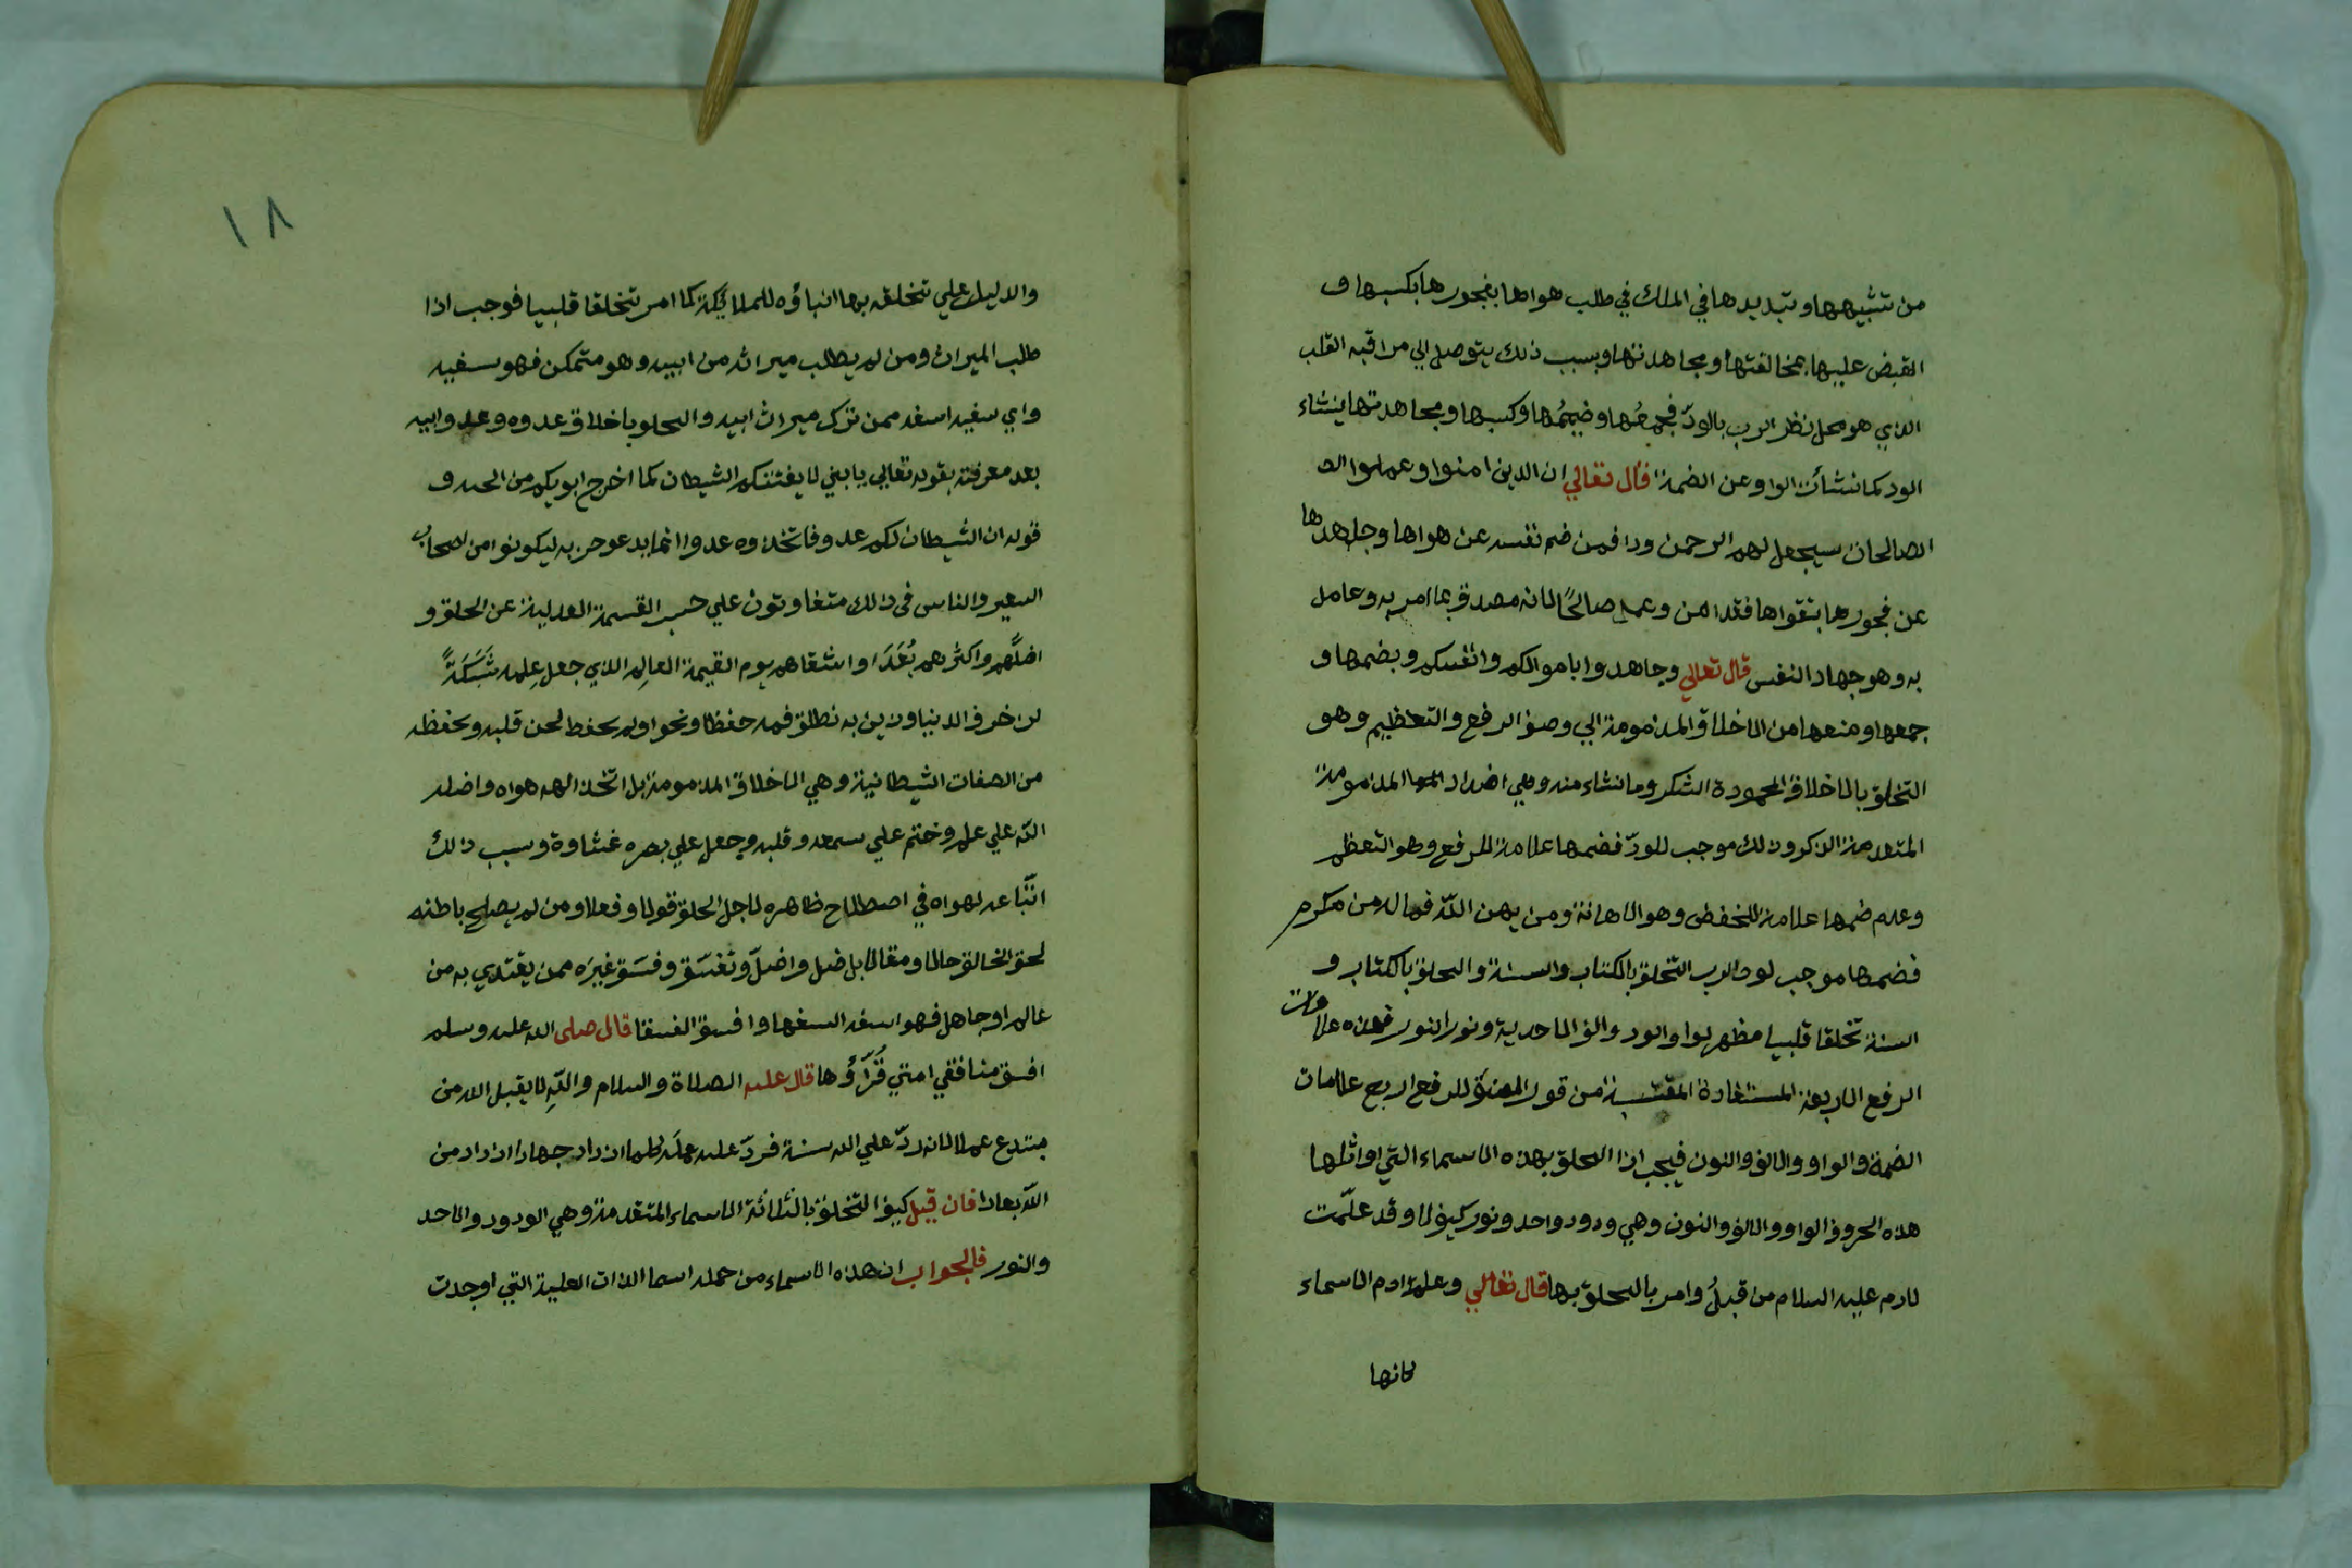 من تشبيهها وتبديدها في الملك في طلب هواها بفجورها بكسبها و
القبض عليها بمخالفتها ومجاهدتها وبسبب ذلك يتوصل الي مراقبه القلب
الذي هو محل نظر الرب بالودّ فجمعُها وضمُّها وكسبها ومجاهدتها ينشاء
الود كما نشأت الواو عن الضمة قال تعالي ان الذين امنوا وعملوا الص
الصالحات سيجعل لهم الرحمن ودا فمن ضم نفسه عن هواها وجاهدها
عن فجورها بتقواها فقد امن وعمل صالحًا لانه مصدق بما امر به وعامل
به وهو جهاد النفس قال تعالي وجاهدوا باموالكم وانفسكم وبضمها و
جمعها ومنعها من الاخلاق المذمومة الي وصف الرفع والتعظيم وهو
التخلق بالاخلاق المحمودة الشكر وما نشاء منه وهي اضداد المذمومة
المتقدمة الذكر وذلك موجب للودّ فضمها علامة للرفع وهو التعظم
وعدم ضمها علامة للخفض وهو الاهانة ومن يهن اللّه فماله من مكرم
فضمها موجب لود الرب التخلق بالكتاب والسنة والتخلق بالكتاب و
السنة تخلقا قلبيا مظهر لواو الود والف الاحدية ونور النور فهذه علامات
الرفع الاربعة المستفادة المقتبسة من قوله للرفع اربع علامات
الضمة والواو والالف والنون فيجب اذا التخلق بهذه الاسماء التي اوائلها
هذه الحروف الواو والالف والنون وهي ودود واحد ونور كيف لا وقد علّمت
لادم عليه السلام من قبلُ وامر بالتخلق بها قال تعالي وعلم ادم الاسماء
كانها
١٨
والدليل علي تخلقه بها انباؤه للملائكة كما امر تخلقا قلبيا فوجب اذا
طلب الميراث ومن لم يطلب ميراثه من ابيه وهو متمكن فهو سفيه
واي سفيه اسفه ممن ترك ميراث ابيه والتحلو باخلاق عدوه وعدو ابيه
بعد معرفته بقوله تعالي يا بني لا يفتننكم الشيطان كما اخرج ابويكم من الجنه و
قوله ان الشيطان لكم عدو فاتخذوه عدوا انما يدعو حزبه ليكونوا من اصحاب
السعير والناس في ذالك متفاوتون علي حسب القسمة العدلية عن الحلق و
اضلُّهم واكثرهم بُعْدَا واشقاهم يوم القيمة العالِم الذي جعل عِلمه شَبَكَةً
لزخرف الدنيا وزين به نطلق فمه حفظا ونحوا ولم يحفظ لحن قلبه ويحفظه
من الصفات الشيطانية وهي الاخلاق المذمومة بل اتخذ الهه هواه واضله
اللّه علي علم وختم علي سمعه وقلبه وجعل علي بصره غشاوة وسبب ذالك
اتّباعه لهواه في اصطلاح ظاهره لاجل الخلق قولا وفعلا ومن لم يصلح باطنه
لحق الخالق حالا ومقالا بل ضل واضلّ وتفسّق وفسّق غيرَه ممن يقتدي به من
عالم او جاهل فهو اسفه السفها وافسق الفسقا قال صلى الله عليه وسلم
افسق منافقي امتي قُرّاؤُها قال عليه الصلاة والسلام واللّهِ لا يقبل الله من
مبتدع عملا لانه ردّ علي الله سنة فردّ عليه عمله كلما ازداد جهادا ازداد من
اللّه بعادا فان قيل كيف التخلق بالثلاثة الاسماء المتقدمة وهي الودود والاحد
والنور فالجواب ان هذه الاسماء من جمله اسما الذات العلية التي اوجدت